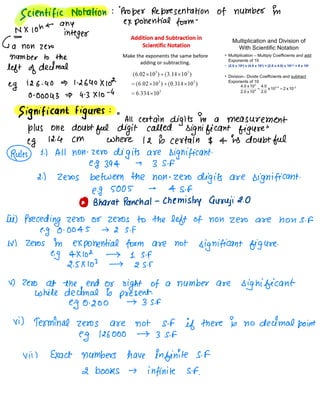 Scientific Notation : "Proper Representation of number in
exponential form"
N X 10ⁿ ← any integer
↳ a non zero
number to the
left of decimal
eg 126.40 → 1.2640 X10²
0.00043 → 4.3 X10⁻⁴
Addition and Subtraction in
Scientific Notation
Make the exponents the same before
adding or subtracting.
Multiplication and Division of
With Scientific Notation
• Multiplication - Multiply Coefficients and add
Exponents of 10
• Division - Divide Coefficients and subtract
Exponents of 10
Significant Figures :-
All certain digits in a measurement
plus one doubtful digit called Significant figure"
eg 12.4 cm where 12 is certain & 4 is doubtful
Rules 1) All non-zero digits are significant.
eg 394 → 3 S.F
2) Zeros between the non-zero digits are significant.
eg 5005 → 4 S.F
Bharat Panchal - Chemistry Guruji 2.0
iii) Preceding zero or zeros to the left of non zero are non S.F
eg 0.0045 → 2 S.F
iv) Zeros in exponential form are not significant figure.
eg 4X10² → 1 S.F
2.5X10³ → 2 S.F
v) Zero at the end or right of a number are significant
while decimal is present
eg 0.200 → 3 S.F
vi) Terminal zeros are not S.F if there is no decimal point
eg 126000 → 3 S.F
vii) Exact numbers have Infinite S.F
2 books → infinite S.F.